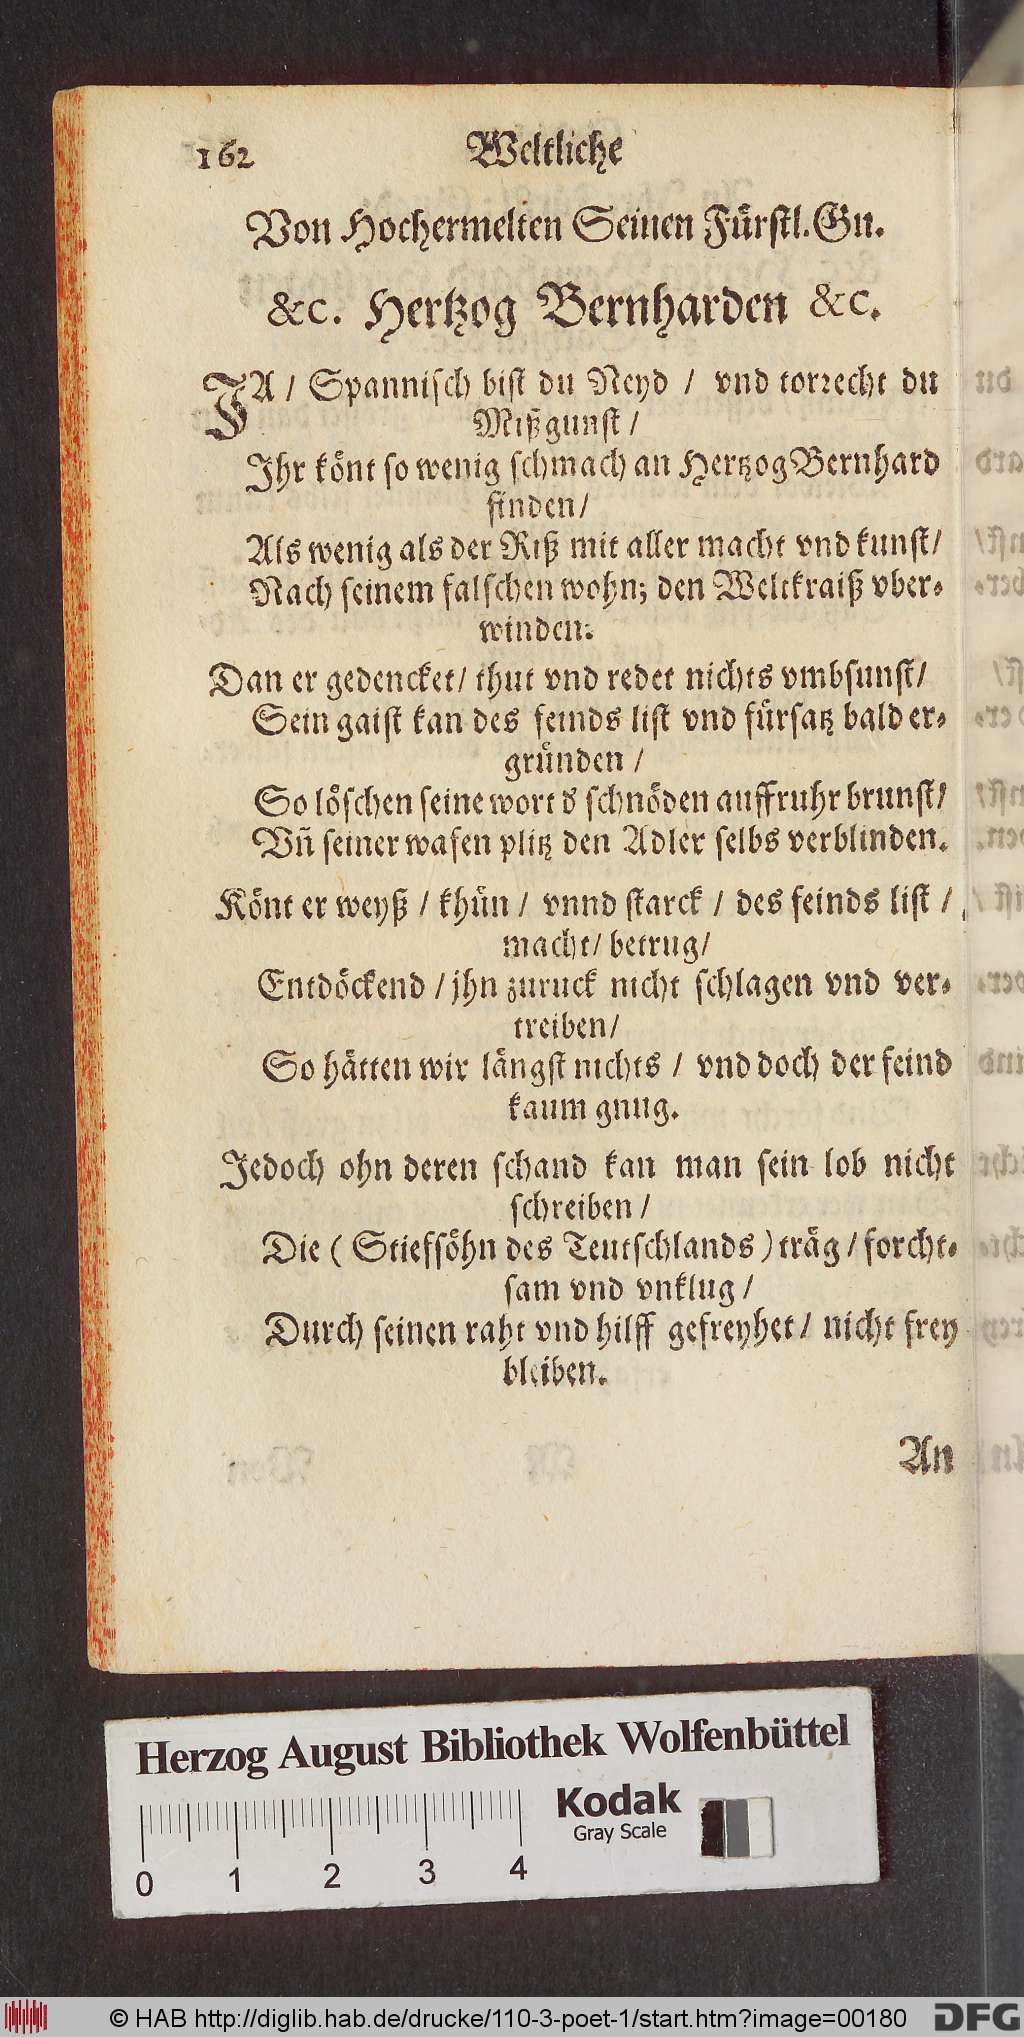 162 Weltliche
Von Hochermelten Seinen Fürstl. Gn.
&c. Hertzog Bernharden &c.
JA / Spannisch bist du Neyd / vnd torrecht du
Mißgunst /
Ihr könt so wenig schmach an Hertzog Bernhard
finden /
Als wenig als der Riß mit aller macht vnd kunst /
Nach seinem falschen wohn; den Weltkraiß vber-
winden:
Dan er gedencket / thut vnd redet nichts vmbsunst /
Sein gaist kan des feinds list vnd fürsatz bald er-
gründen /
So löschen seine wort ds schnöden auffruhr brunst /
Vn̄ seiner wafen plitz den Adler selbs verblinden.
Könt er weyß / khün / vnnd starck / des feinds list /
macht / betrug /
Entdöckend / jhn zuruck nicht schlagen vnd ver-
treiben /
So hätten wir längst nichts / vnd doch der feind
kaum gnug.
Jedoch ohn deren schand kan man sein lob nicht
schreiben /
Die ( Stiefsöhn des Teutschlands ) träg / forcht-
sam vnd vnklug /
Durch seinen raht vnd hilff gefreyhet / nicht frey
bleiben.
An
Herzog August Bibliothek Wolfenbüttel
Kodak
Gray Scale
0 1 2 3 4
© HAB http://diglib.hab.de/drucke/110-3-poet-1/start.htm?image=00180
DFG